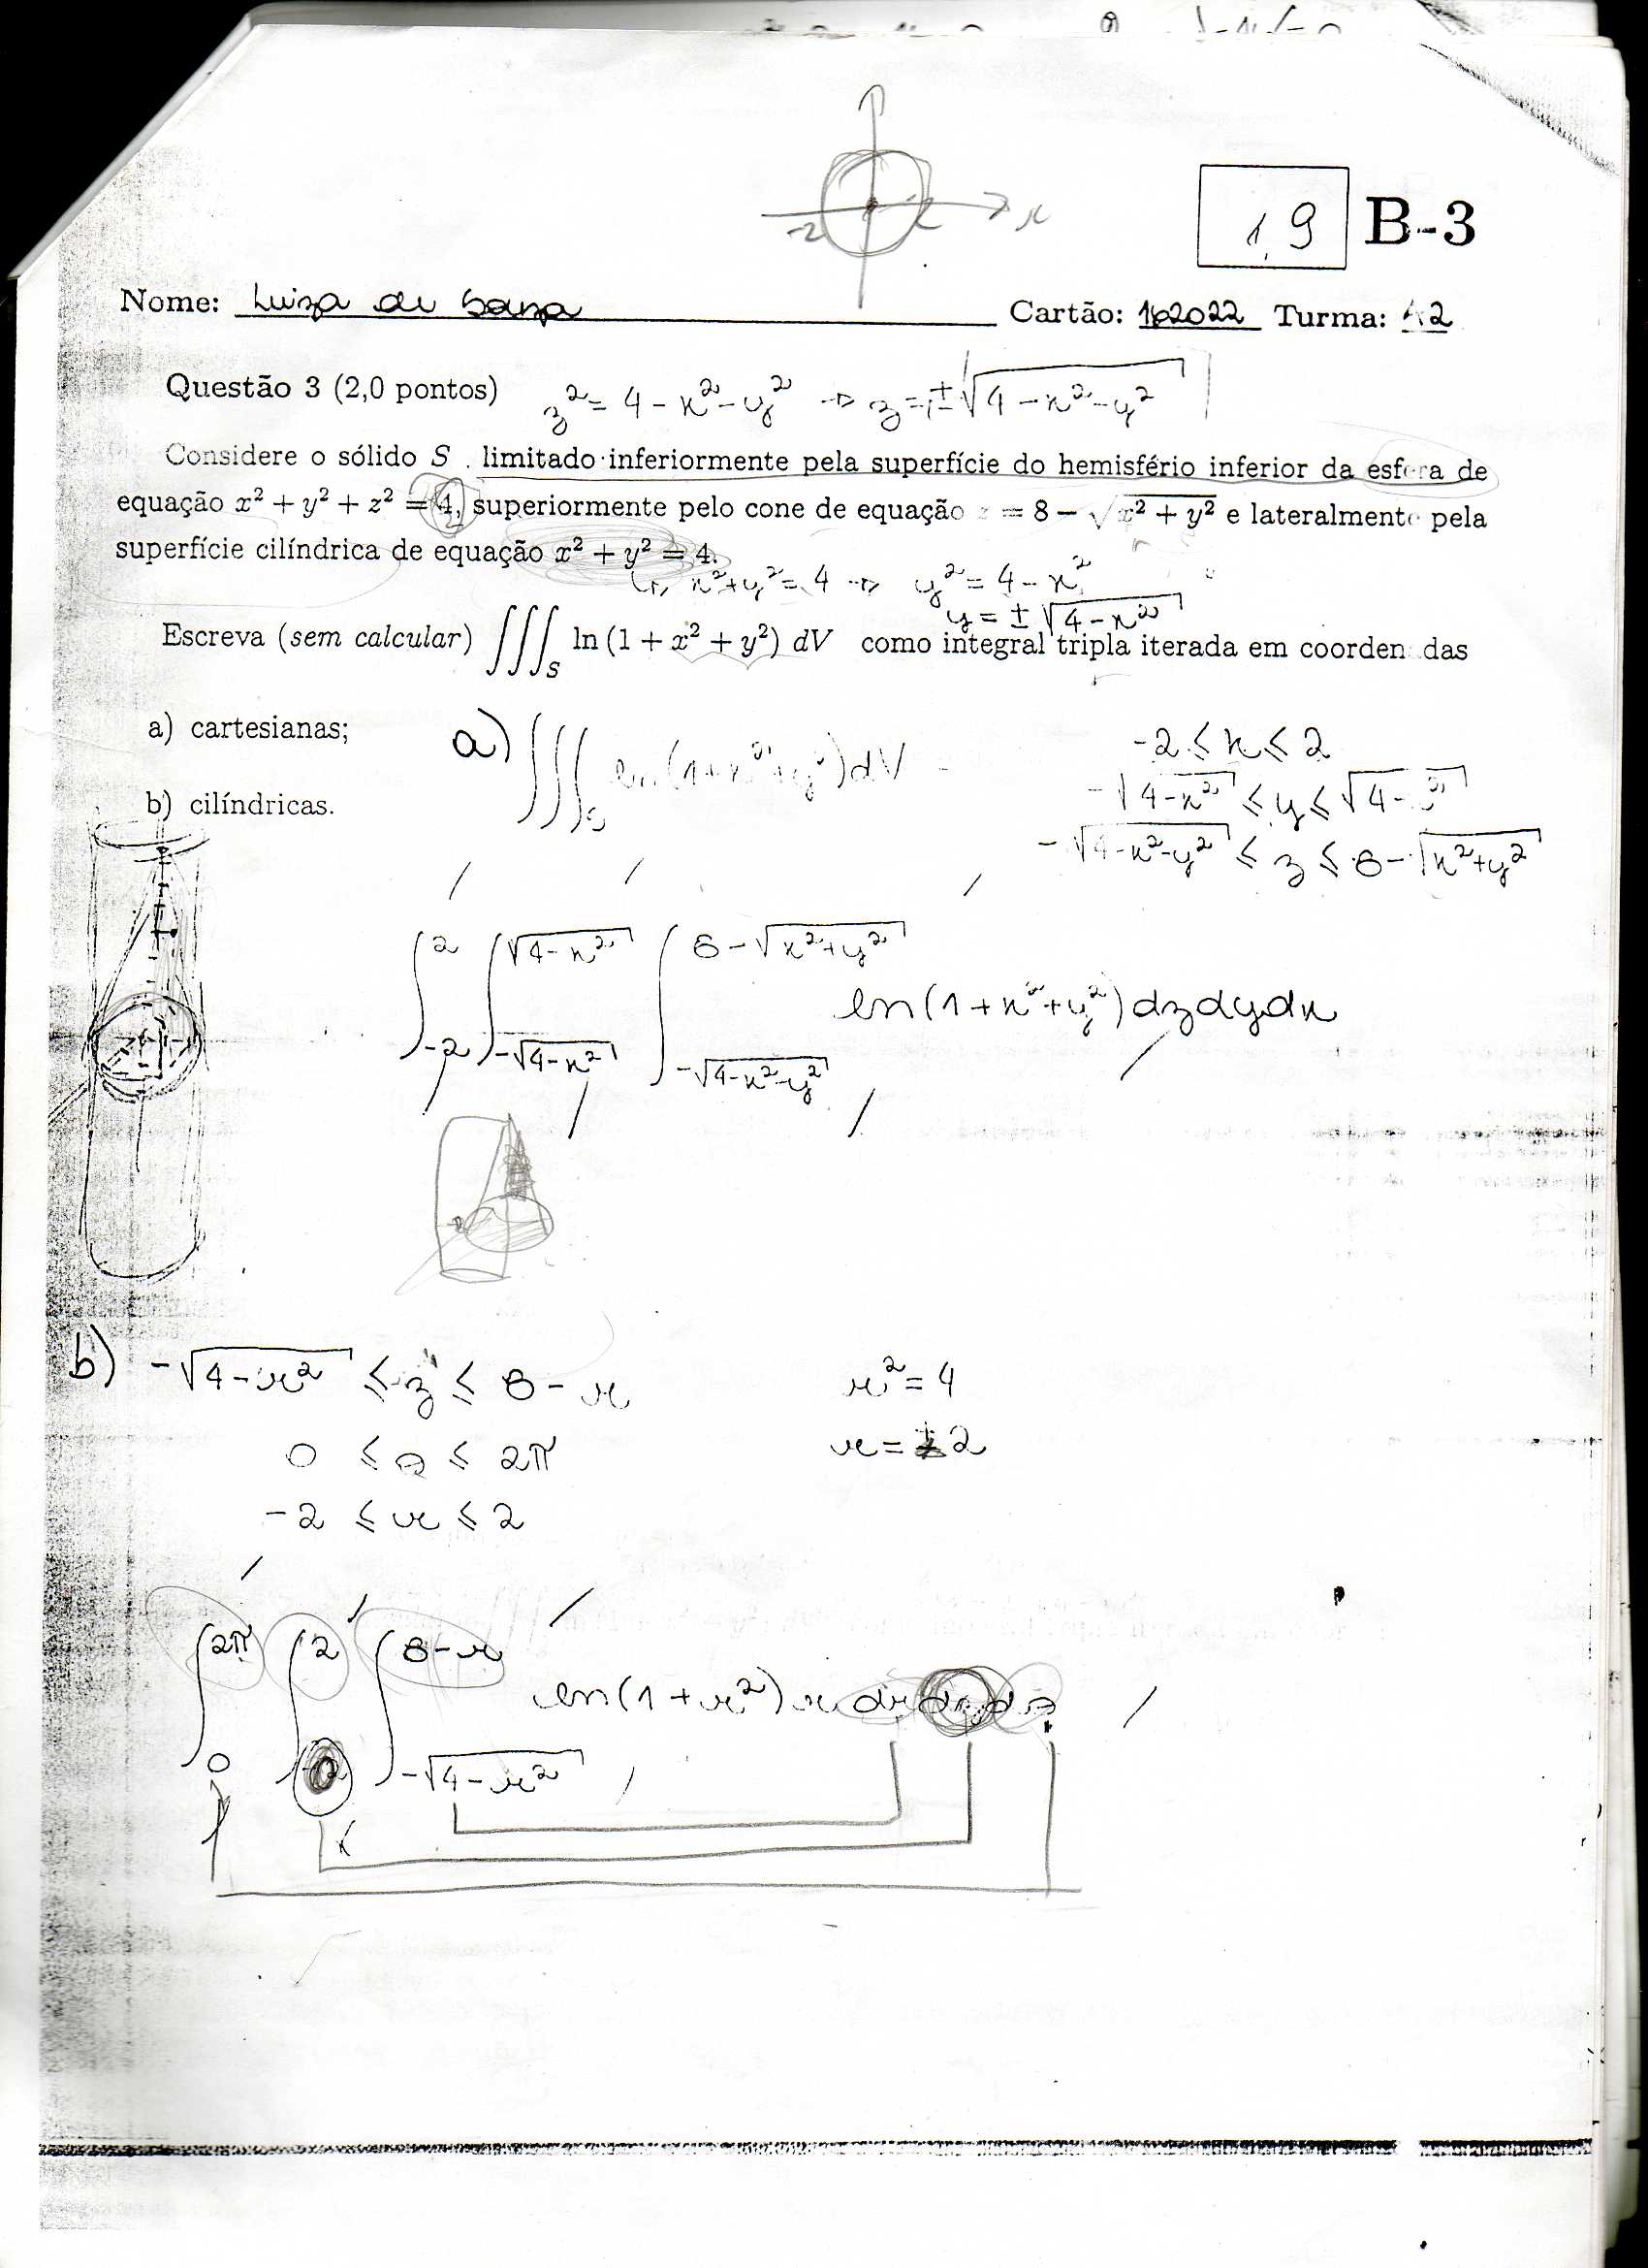 1,9 B-3
Nome: Luiza de Souza Cartão: 162022 Turma: A2
-2 2 x
Questão 3 (2,0 pontos) z² = 4 - x² - y² → z = ±√(4 - x² - y²)
Considere o sólido S . limitado inferiormente pela superfície do hemisfério inferior da esfera de
equação x² + y² + z² = 4, superiormente pelo cone de equação z = 8 − √(x² + y²) e lateralmente pela
superfície cilíndrica de equação x² + y² = 4.
↳ x² + y² = 4 → y² = 4 - x²
y = ±√(4 - x²)
Escreva (sem calcular) ∫∫∫_S ln (1 + x² + y²) dV como integral tripla iterada em coordenadas
a) cartesianas;
b) cilíndricas.
a) ∫∫∫_S ln(1 + x² + y²) dV
-2 ≤ x ≤ 2
-√(4 - x²) ≤ y ≤ √(4 - x²)
-√(4 - x² - y²) ≤ z ≤ 8 - √(x² + y²)
∫_{-2}^{2} ∫_{-√(4-x²)}^{√(4-x²)} ∫_{-√(4-x²-y²)}^{8-√(x²+y²)} ln(1 + x² + y²) dz dy dx
b) -√(4 - r²) ≤ z ≤ 8 - r r² = 4
0 ≤ θ ≤ 2π r = ±2
-2 ≤ r ≤ 2
∫_{0}^{2π} ∫_{0}^{2} ∫_{-√(4-r²)}^{8-r} ln(1 + r²) r dz dr dθ